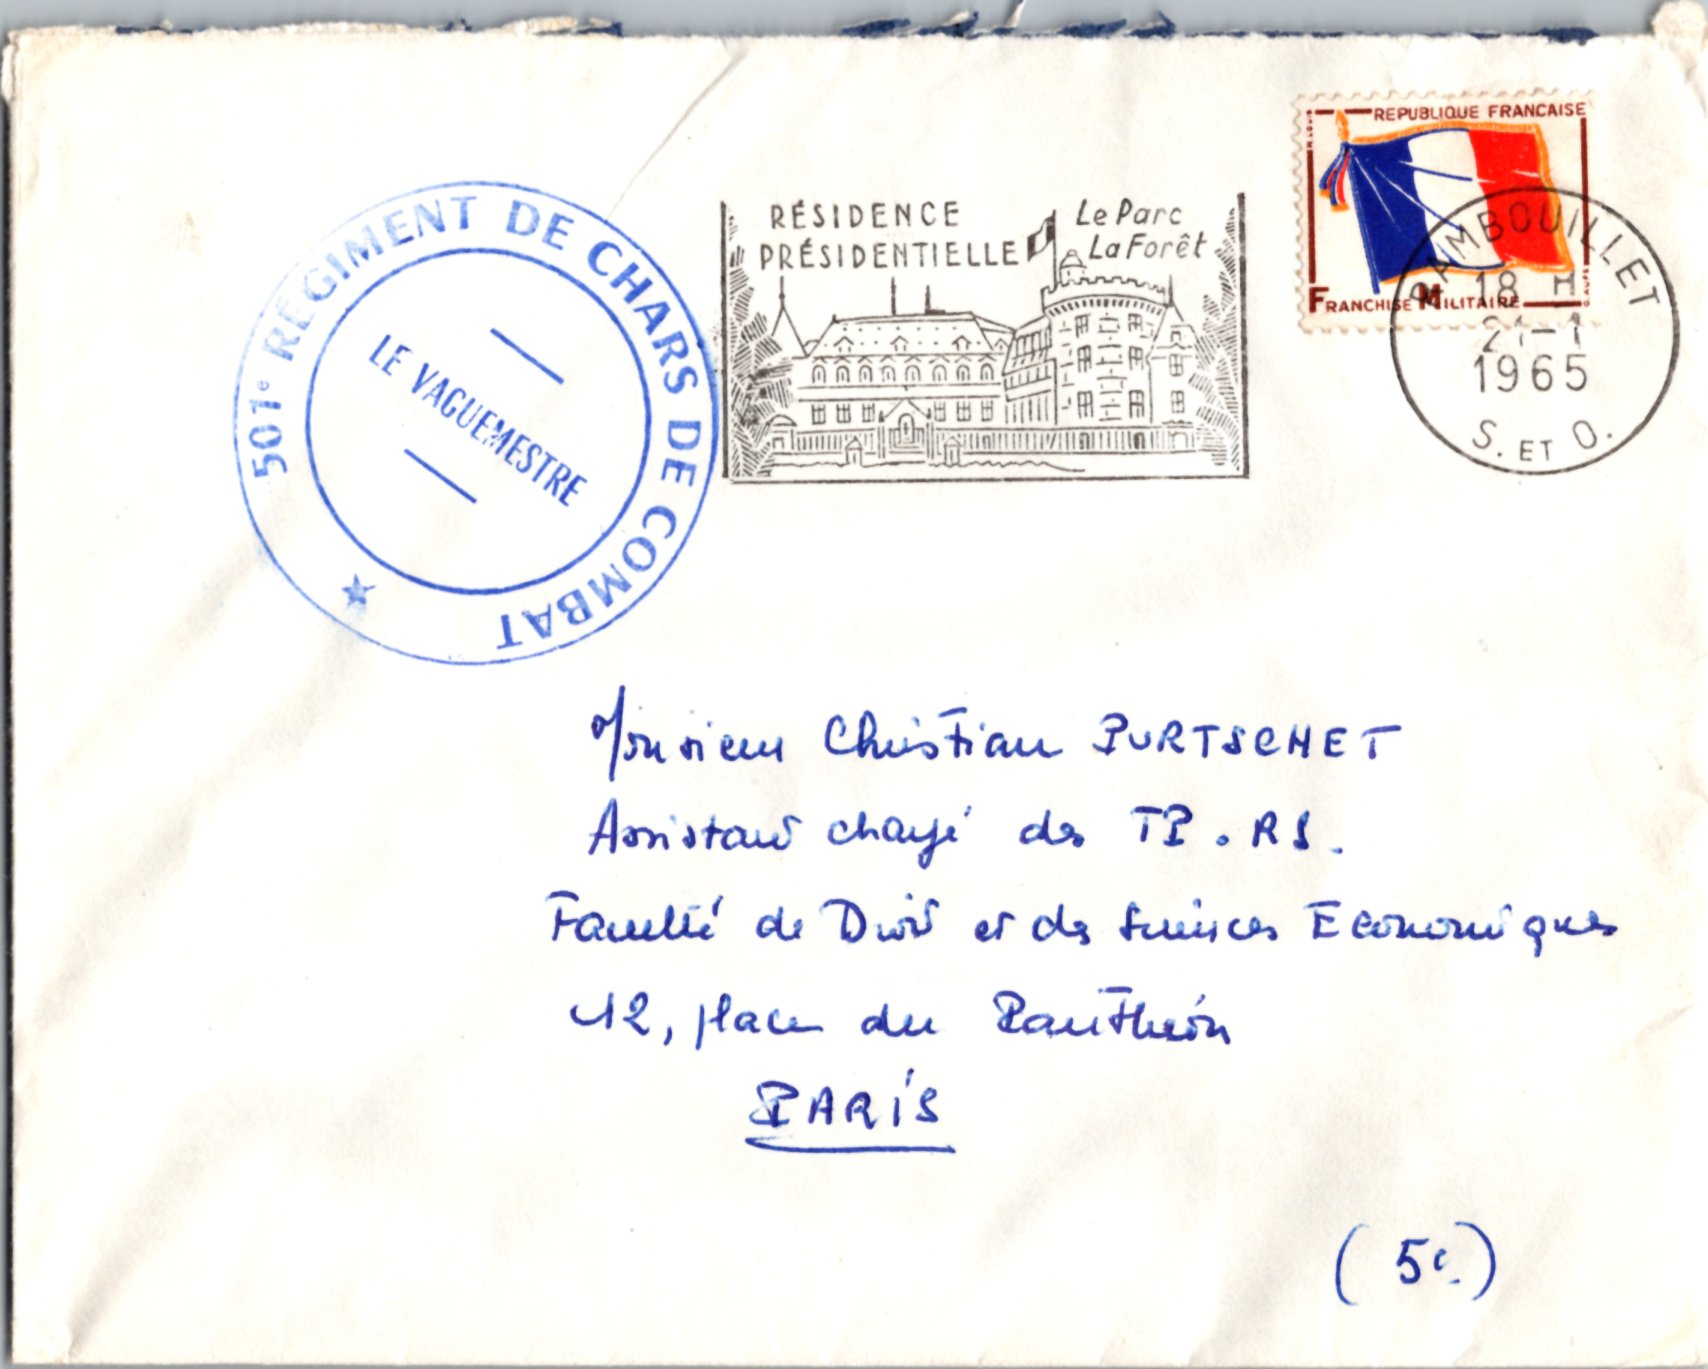 REPUBLIQUE FRANCAISE
FRANCHISE MILITAIRE
RAMBOUILLET
18 H
21-1
1965
S. ET O.
RÉSIDENCE
PRÉSIDENTIELLE
Le Parc
La Forêt
501e REGIMENT DE CHARS DE COMBAT
LE VAGUEMESTRE
Monsieur Christian PURTSCHET
Assistant chargé des TP. RS.
Faculté de Droit et des Sciences Economiques
12, place du Panthéon
PARIS
(5e)